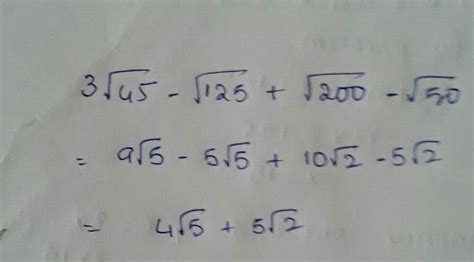 3√45 - √125 + √200 - √50
= 9√5 - 5√5 + 10√2 - 5√2
= 4√5 + 5√2